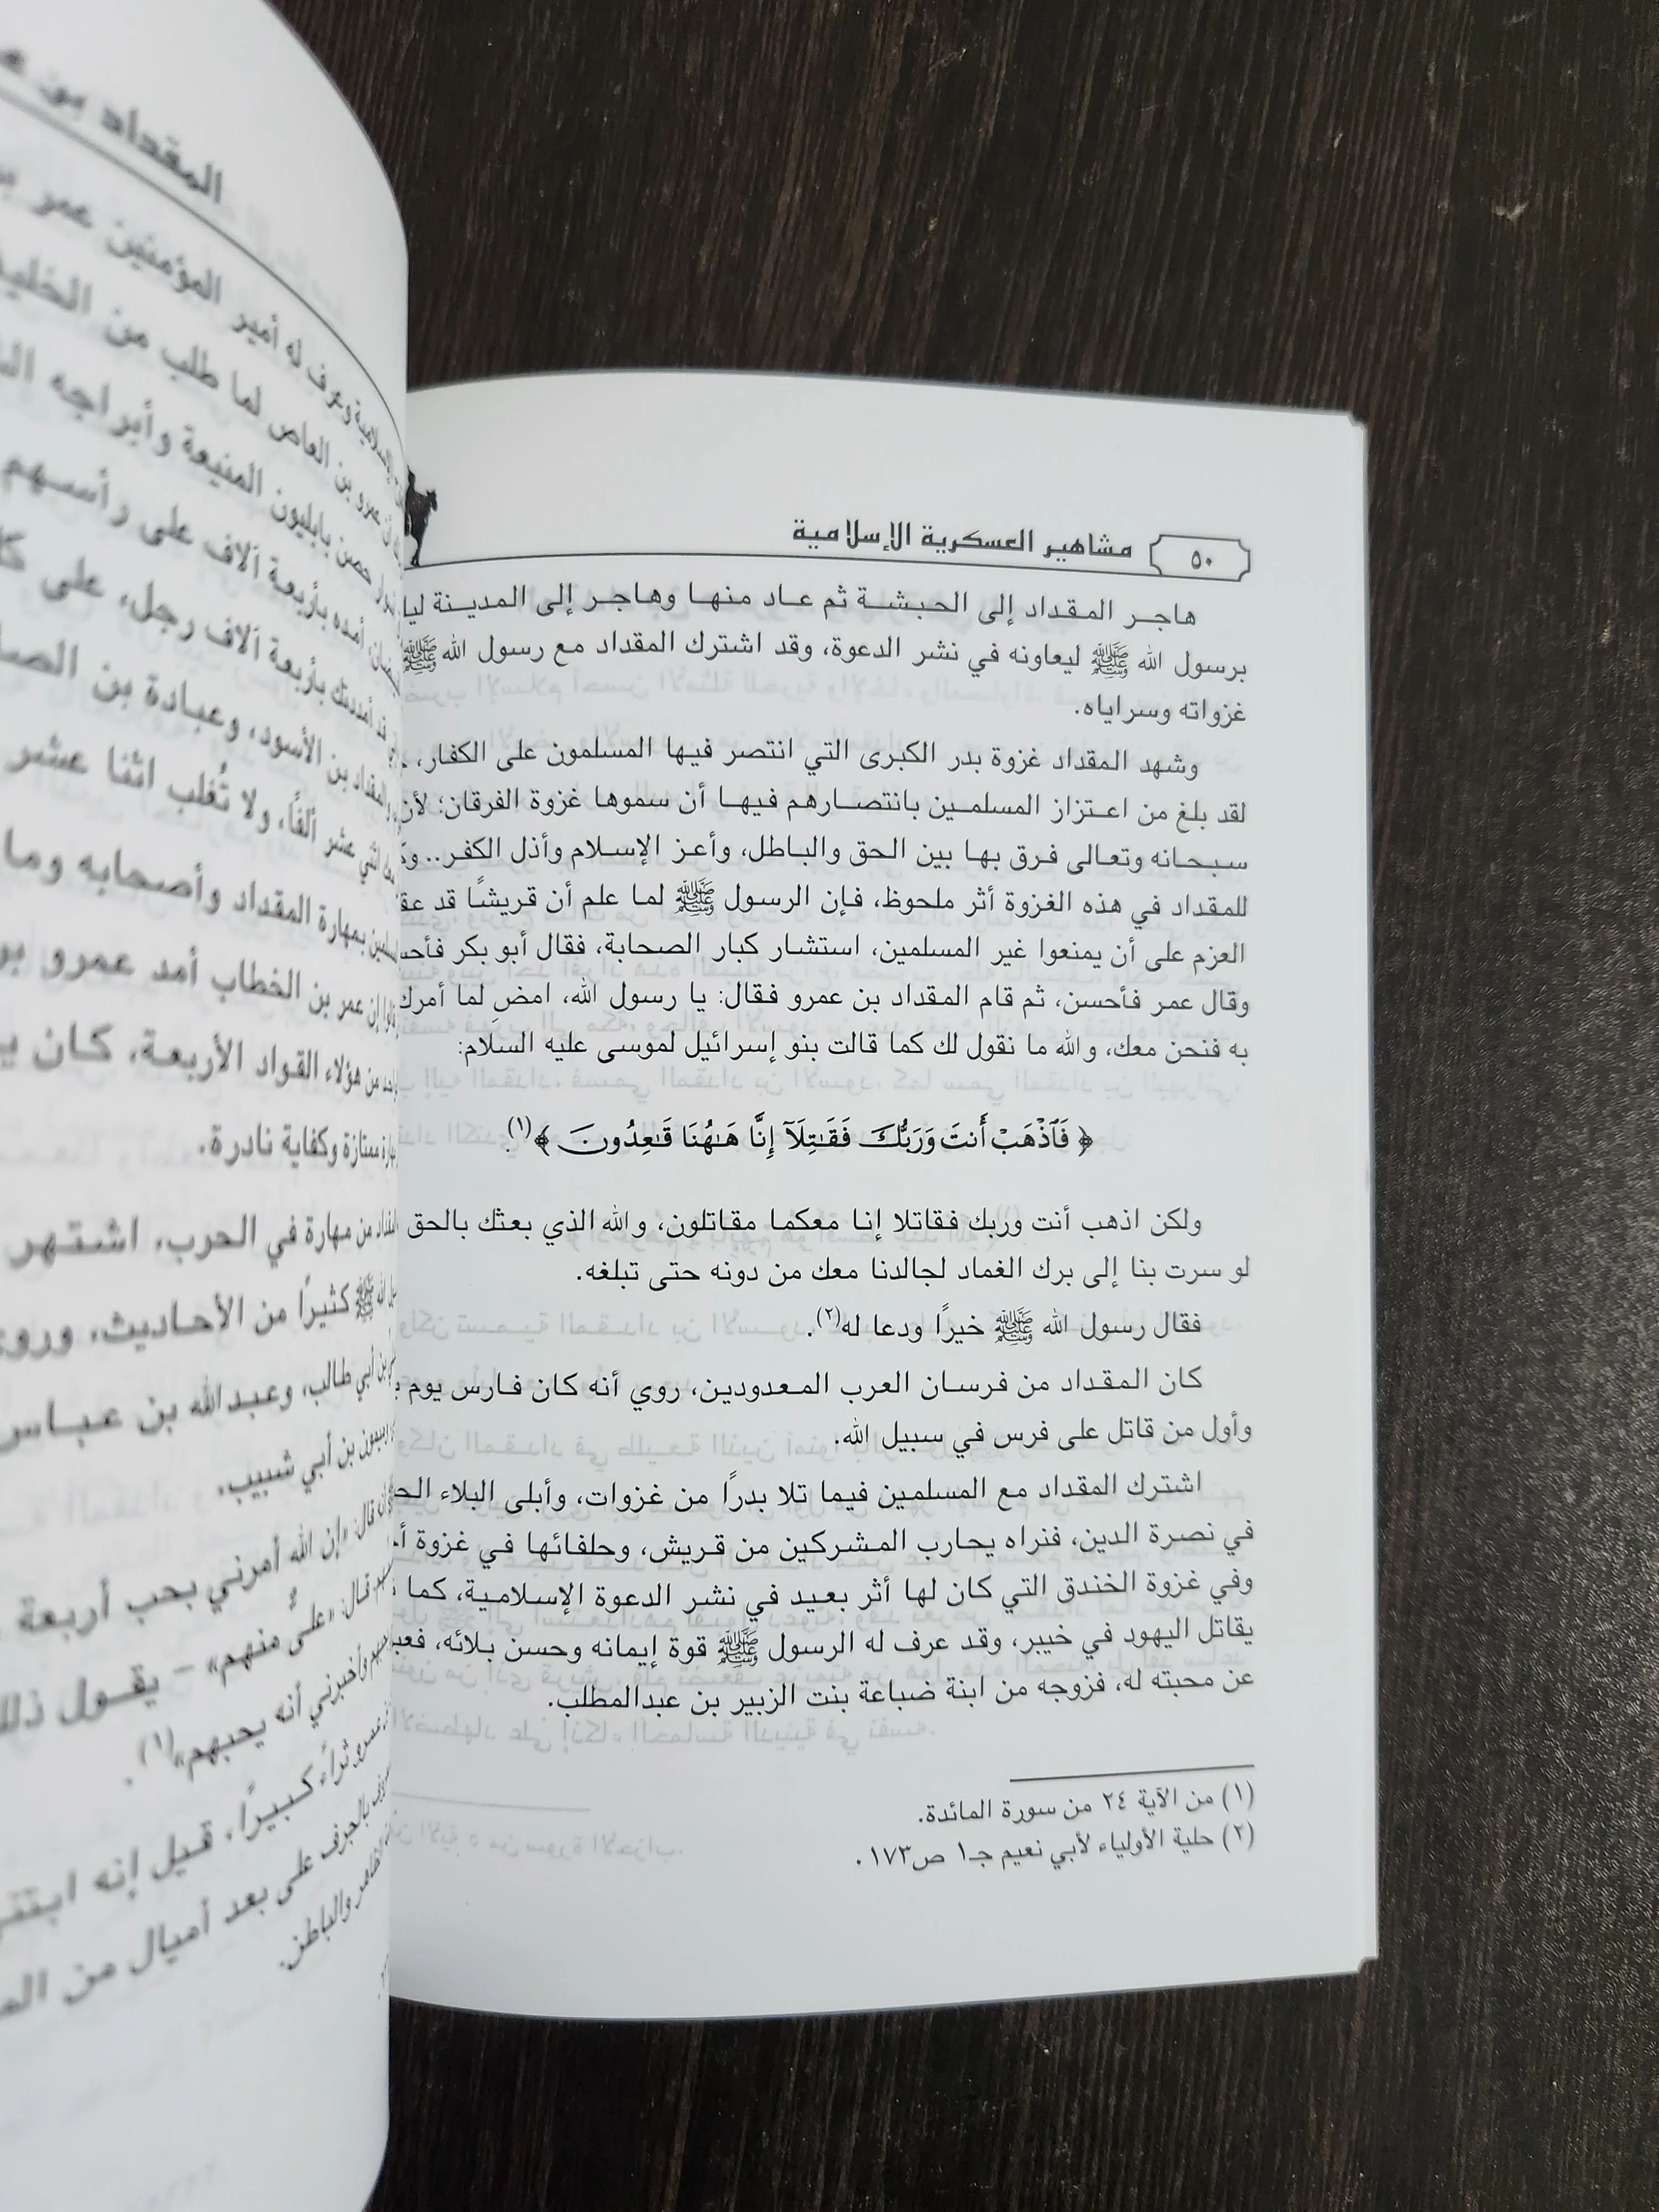 ٥٠
مشاهير العسكرية الإسلامية
هاجر المقداد إلى الحبشة ثم عاد منها وهاجر إلى المدينة
برسول الله ﷺ ليعاونه في نشر الدعوة، وقد اشترك المقداد مع رسول الله ﷺ
غزواته وسراياه.
وشهد المقداد غزوة بدر الكبرى التي انتصر فيها المسلمون على الكفار،
لقد بلغ من اعتزاز المسلمين بانتصارهم فيها أن سموها غزوة الفرقان؛ لأن
سبحانه وتعالى فرق بها بين الحق والباطل، وأعز الإسلام وأذل الكفر..
للمقداد في هذه الغزوة أثر ملحوظ، فإن الرسول ﷺ لما علم أن قريشًا قد
العزم على أن يمنعوا غير المسلمين، استشار كبار الصحابة، فقال أبو بكر
وقال عمر فأحسن، ثم قام المقداد بن عمرو فقال: يا رسول الله، امضِ لما أمرك
به فنحن معك، والله ما نقول لك كما قالت بنو إسرائيل لموسى عليه السلام:
﴿ فَٱذْهَبْ أَنتَ وَرَبُّكَ فَقَـٰتِلَآ إِنَّا هَـٰهُنَا قَـٰعِدُونَ ﴾(١).
ولكن اذهب أنت وربك فقاتلا إنا معكما مقاتلون، والله الذي بعثك بالحق
لو سرت بنا إلى برك الغماد لجالدنا معك من دونه حتى تبلغه.
فقال رسول الله ﷺ خيرًا ودعا له(٢).
كان المقداد من فرسان العرب المعدودين، روي أنه كان فارس يوم
وأول من قاتل على فرس في سبيل الله.
اشترك المقداد مع المسلمين فيما تلا بدرًا من غزوات، وأبلى البلاء
في نصرة الدين، فنراه يحارب المشركين من قريش، وحلفائها في غزوة
وفي غزوة الخندق التي كان لها أثر بعيد في نشر الدعوة الإسلامية، كما
يقاتل اليهود في خيبر، وقد عرف له الرسول ﷺ قوة إيمانه وحسن بلائه،
عن محبته له، فزوجه من ابنة ضباعة بنت الزبير بن عبدالمطلب.
(١) من الآية ٢٤ من سورة المائدة.
(٢) حلية الأولياء لأبي نعيم جـ١ ص١٧٣.
المقداد بن
وعرف له أمير المؤمنين عمر
عمرو بن العاص لما طلب من
حصن بابليون المنيعة وأبراجه
أمده بأربعة آلاف على رأسهم
قد أمددتك بأربعة آلاف رجل، على
المقداد بن الأسود، وعبادة بن
اثني عشر ألفًا، ولا تُغلب اثنا عشر
بمهارة المقداد وأصحابه وما
إن عمر بن الخطاب أمد عمرو
من هؤلاء القواد الأربعة، كان
ممتازة وكفاية نادرة.
من مهارة في الحرب، اشتهر
الله ﷺ كثيرًا من الأحاديث، وروى
بن أبي طالب، وعبدالله بن عباس
بن أبي شبيب.
قال: «إن الله أمرني بحب أربعة
قال: «عليٌّ منهم» - يقول ذلك
وأخبرني أنه يحبهم»(١).
ثراء كبيرًا، قيل إنه
بالجرف على بعد أميال من
والباطن.